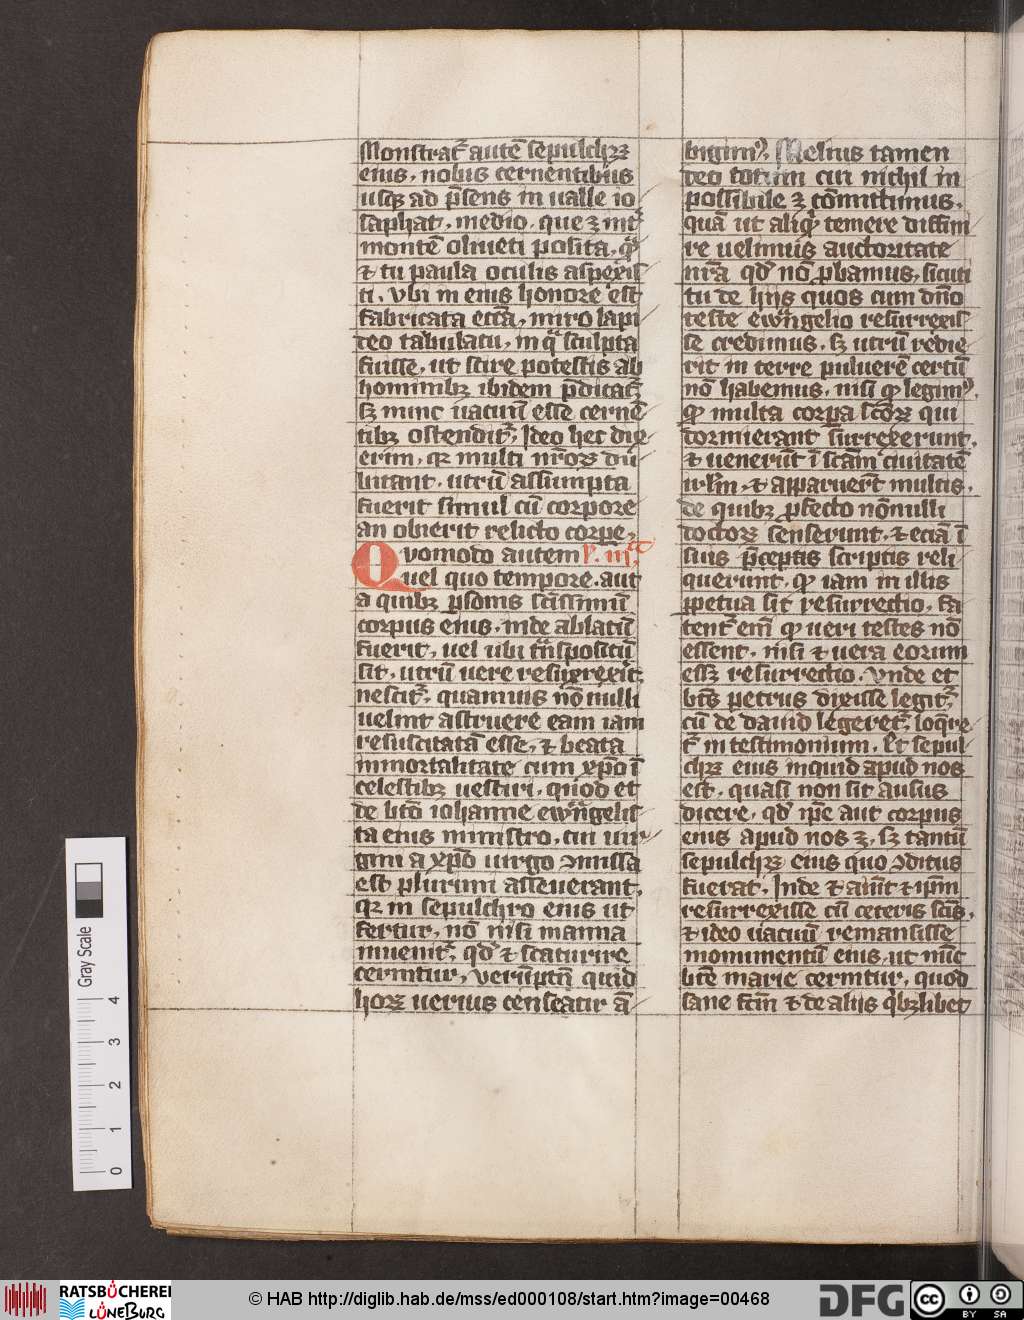 Monstrat᷒ autē sepulchꝝ
eius, nobis cernentibus
usqꝫ ad p̄sens in ualle io
saphat, medio, que ꝫ int᷒
montē oliueti posita, qᷓ
⁊ tu paula oculis asperis
ti, Vbi in eius honore est
fabricata eccᷓa, miro lapi
deo tabulatu, in qᷓ sculpta
fuisse, ut scire potestis ab
hominibꝫ ibidem p̄dicat᷒
sꝫ nunc uacuū esse cernē
tibꝫ ostendit᷒, Ideo hec dix
erim, qꝛ multi nr̄oꝝ du
bitant, utrū assumpta
fuerit simul cū corpore
an obierit relicto corpe,
Quomodo autem
uel quo tempore, aut
a quibꝫ p̱sonis sc̄issimū
corpus eius, inde ablatū
fuerit, uel ubi tᷓnspositū
sit, utrū uere resurrexit,
nescit᷒, quamuis nō nulli
uelint astruere eam iam
resuscitatā esse, ⁊ beata
inmortalitate cum xp̄o ī
celestibꝫ uestiri, quod et
de bt̄o iohanne ewᷓngelis
ta eius ministro, cui uir
gini a xp̄o uirgo ꝯmissa
est plurimi asseuerant,
qꝛ in sepulchro eius ut
fertur, nō nisi manna
inuenit᷒, qd̄ ⁊ scaturire
cernitur, Verūptn̄ quid
hoꝝ uerius censeatur ā
bigim᷒, Melius tamen
deo totum cui nichil in
possibile ꝫ cōmittimus,
quā ut aliqᷓ temere diffini
re uelimus auctoritate
nr̄a qd̄ nō ꝓbamus, sicuti
tu de hijs quos cum dn̄o
teste ewᷓngelio resurrexis
se credimus, sꝫ utrū redie
rit in terre puluerē certū
nō habemus, nisi ꝙ legim᷒,
ꝙ multa corpa sc̄oꝝ qui
dormierant surrexerunt,
⁊ uenerūt ī sc̄am ciuitatē
irl̄m, ⁊ apparuer̄t multis,
de quibꝫ ꝓfecto nōnulli
doctoꝝ senserunt, ⁊ eciā ī
suis p̄ceptis scriptis reli
querunt, ꝙ iam in illis
ꝑpetua sit resurrectio, fa
tent᷒ em̄ ꝙ ueri testes nō
essent, nisi ⁊ uera eorum
essꝫ resurrectio, Vnde et
bt̄s petrus dixisse legit᷒,
cū de dauid legeret᷒, loqᷓre
t᷒ in testimonium, Et sepul
chꝝ eius inquid apud nos
est, quasi non sit ausus
dicere, qd̄ ip̄e aut corpus
eius apud nos ꝫ, sꝫ tantū
sepulchꝝ eius quo ꝯditus
fuerat, Inde ⁊ aiūt ⁊ ip̄m
resurrexisse cū ceteris sc̄is,
⁊ ideo uacuū remansisse
monumentū eius, ut nūc
bt̄e marie cernitur, quod
sane fc̄m ⁊ de alijs qⁱbꝫlibet
Gray Scale
4
3
2
1
0
RATSBÜCHEREI
LÜNEBURG
© HAB http://diglib.hab.de/mss/ed000108/start.htm?image=00468
DFG
cc
BY SA